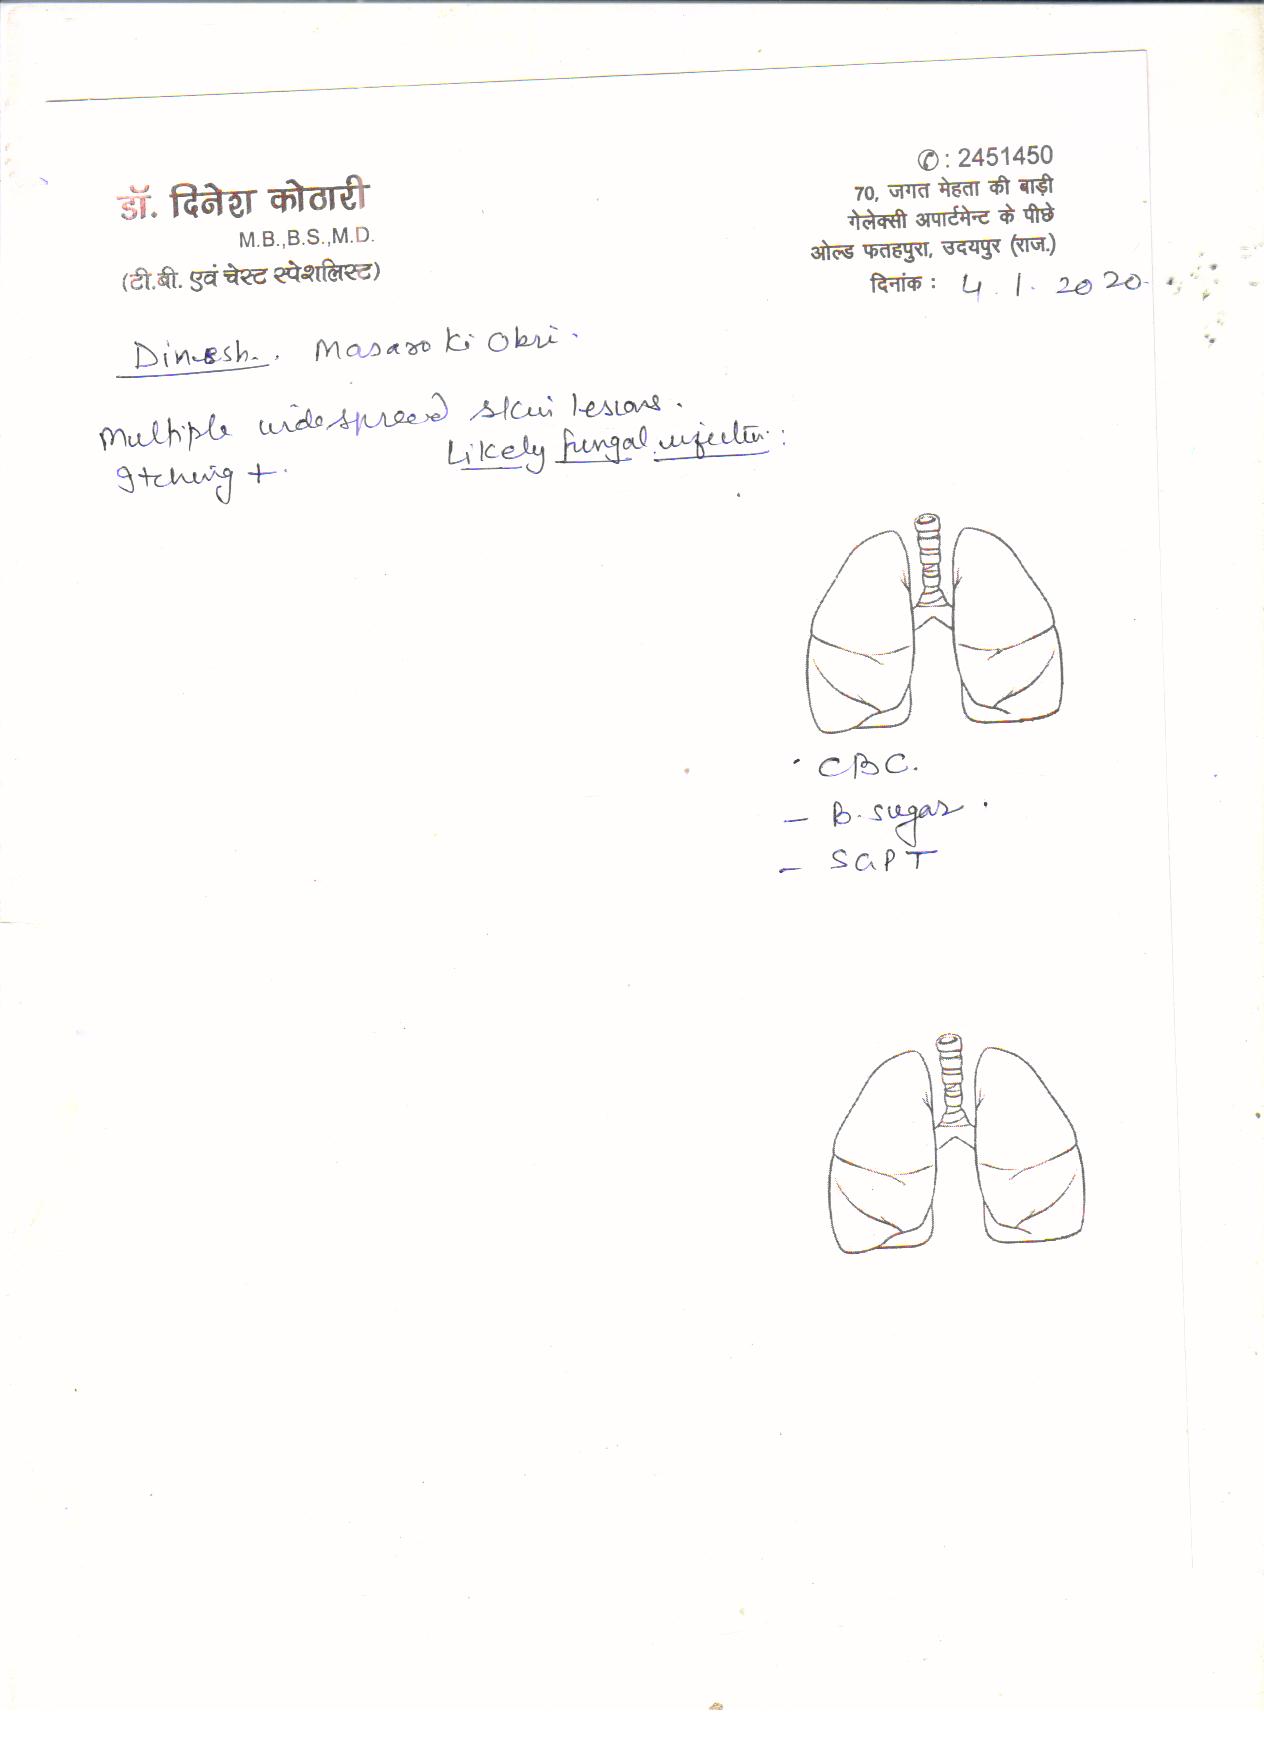 ✆ : 2451450
डॉ. दिनेश कोठारी
M.B.,B.S.,M.D.
(टी.बी. एवं चेस्ट स्पेशलिस्ट)
70, जगत मेहता की बाड़ी
गेलेक्सी अपार्टमेन्ट के पीछे
ओल्ड फतहपुरा, उदयपुर (राज.)
दिनांक : 4.1.2020
Dinesh. Masaro ki Obri.
Multiple widespread skin lesions.
Likely fungal infection:
Itching +
CBC.
- B. sugar.
- SGPT